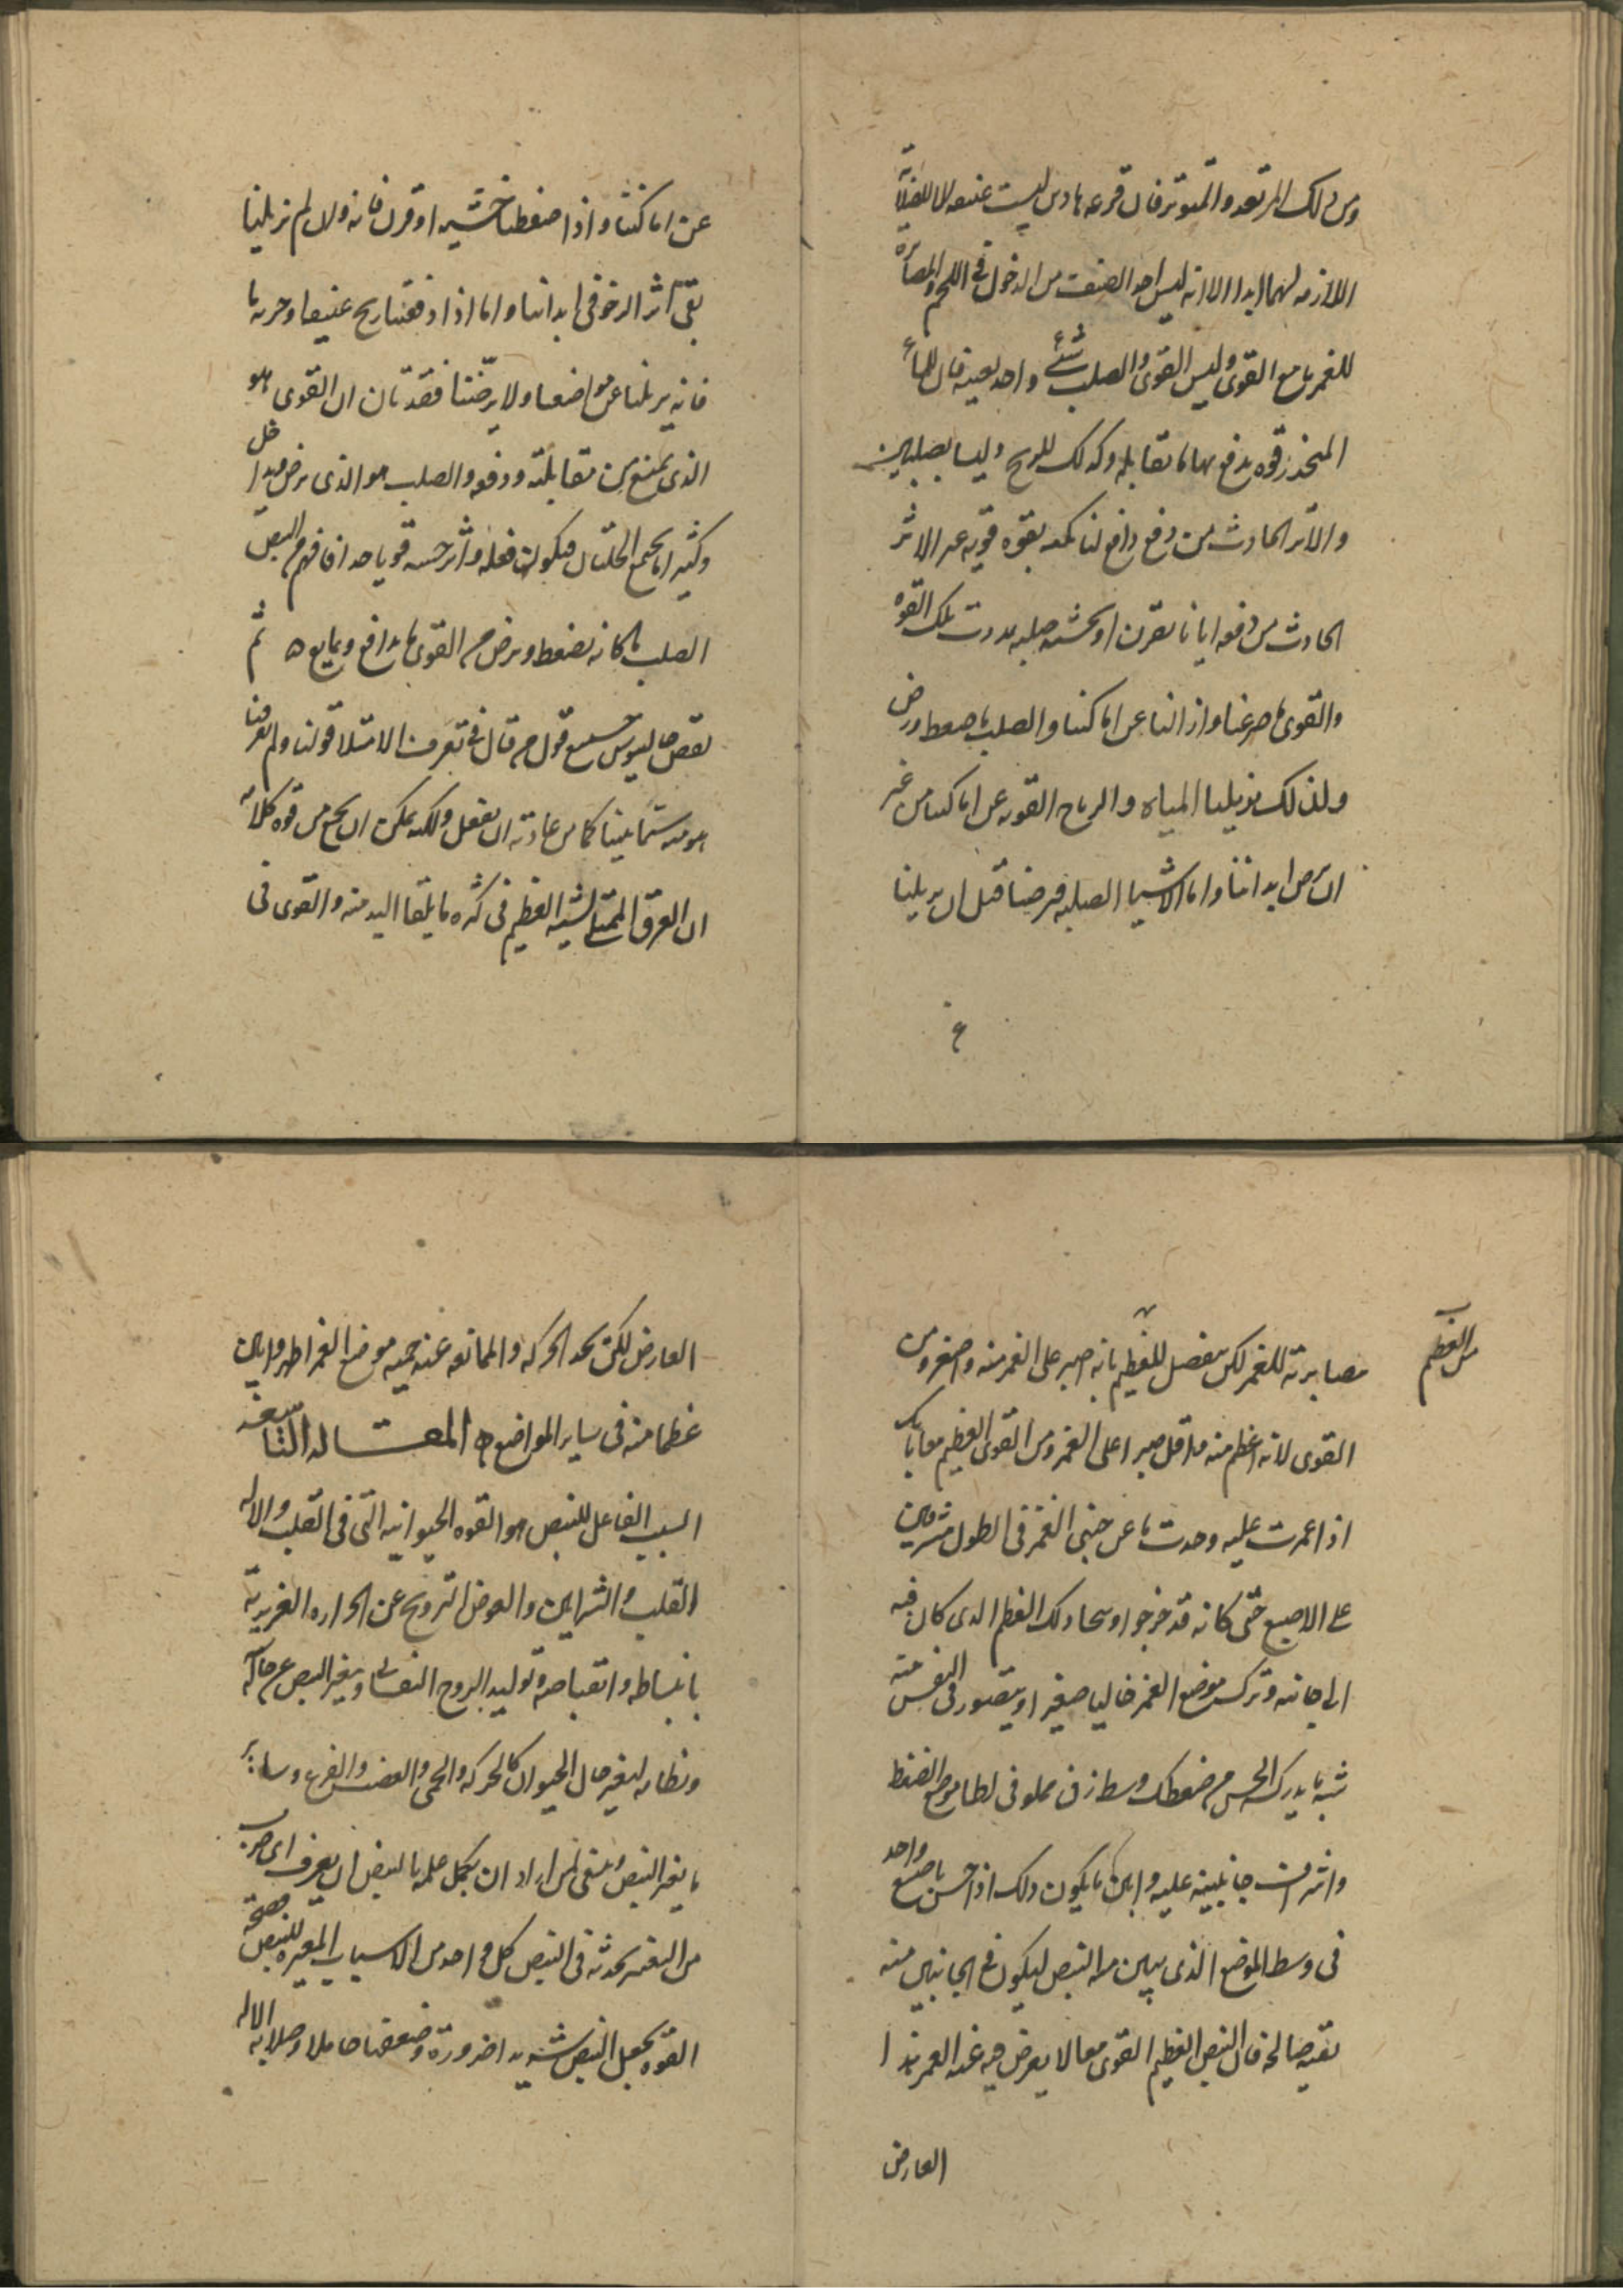 ومن ذلك المرتعد والمتوتر فان قرعهما وس ليست عنيفه الا للقلة
اللازمه لهما ابدا الا انه ليس احد الصنف من الدخول فى اللحم والمصابره
للغمر ما مع القوى وليس القوى والصلب شئ واحد بعينه فان للماء
المنحدر قوه يدفع بها ما تقابله وكذلك للريح وليسا بصلبين
والاثر الحادث من دفع دافع لنا بقوه قويه غير الاثر
الحادث من دفعه ايانا بقرن او بخشبه صلبه بدون تلك القوه
والقوى ما صرعنا وازالنا عن اماكننا والصلب ما ضغط ورض
ولذلك يزيلنا المياه والرياح القويه عن اماكننا من غير
ان ترض ابداننا واما الاشيا الصلبه فترضنا قبل ان يزيلنا
عن
عن اماكننا واذا ضغطنا خشبه او قرن فانه ولان لم يزيلنا
بقى اثر الرض فى ابداننا واما اذا دفعتنا ريح عنيفا وجريه ما
فانه يزيلنا عن مواضعنا ولا يرضنا فقد بان ان القوى هو
الذى يمنع من مقابلته ودفعه والصلب هو الذى يرض مداخل
وكثيرا ما يجتمع الحلتان فيكون فعله واثر حسه قويا جدا فافهم من النبض
الصلب ما كانه يضغط ويرض ومن القوى ما يدافع ويمانع ثم
نقص جالينوس جميع قوله من قال فى تعرف الامتلا قولنا ولم يعرفنا
هو منه شئا بينا كما من عادته ان يفعل ولكنه يمكن ان يجمع من قوه كلامه
ان العرق الممتلى يشبه العظيم فى كثره ما يلقا اليد منه والقوى فى
من العظيم
مصابرته للغمر لكن ينفصل للعظيم بانه اصبر على الغمر منه واصغر ومن
القوى لانه اعظم منه واقل صبرا على الغمر ومن القوى العظيم معا بانك
اذا غمرت عليه وجدت ما عن جنبى الغمز فى الطول مشرفين
على الاصبع حتى كانه قد خرج اوسحا ذلك العظم الذى كان فيه
الى جانبه وترك موضع الغمز خاليا صغيرا ويتصور فى النفس منه
شبه ما يدركه الحس من ضغطك وسط زق مملو فى لطا موضع الضغط
واشراف جانبيه عليه وابين ما يكون ذلك اذا حسن باصبع واحد
فى وسط الموضع الذى يبين منه النبض ليكون فى الجانبين منه
بقيه صالحه فان النبض العظيم القوى معا لا يعرض فيه عند الغمر هذا
العارض
العارض لكن تجد الحركه والممانعه عند جنبه موضع الغمر اظهر وابين
عظما منه فى ساير المواضع المقاله التاسعه
السبب الفاعل للنبض هو القوه الحيوانيه التى فى القلب والاله
القلب والشرايين والغرض الترويح عن الحراره الغريزيه
بانبساطه وانقباضه وتوليد الروح النفسانى ويتغير النبض عن حاله
ونظامه لتغير حال الحيوان كالحركه والحمى والغضب والفزع وساير
ما يغير النبض وينبغى لمن اراد ان يكمل علمه بالنبض ان يعرف اى ضرب
من التغير يحدثه فى النبض كل واحد من الاسباب المغيره للنبض فصحة
القوه يجعل النبض شديدا ضروره وضعفها خاملا وصلابه الاله